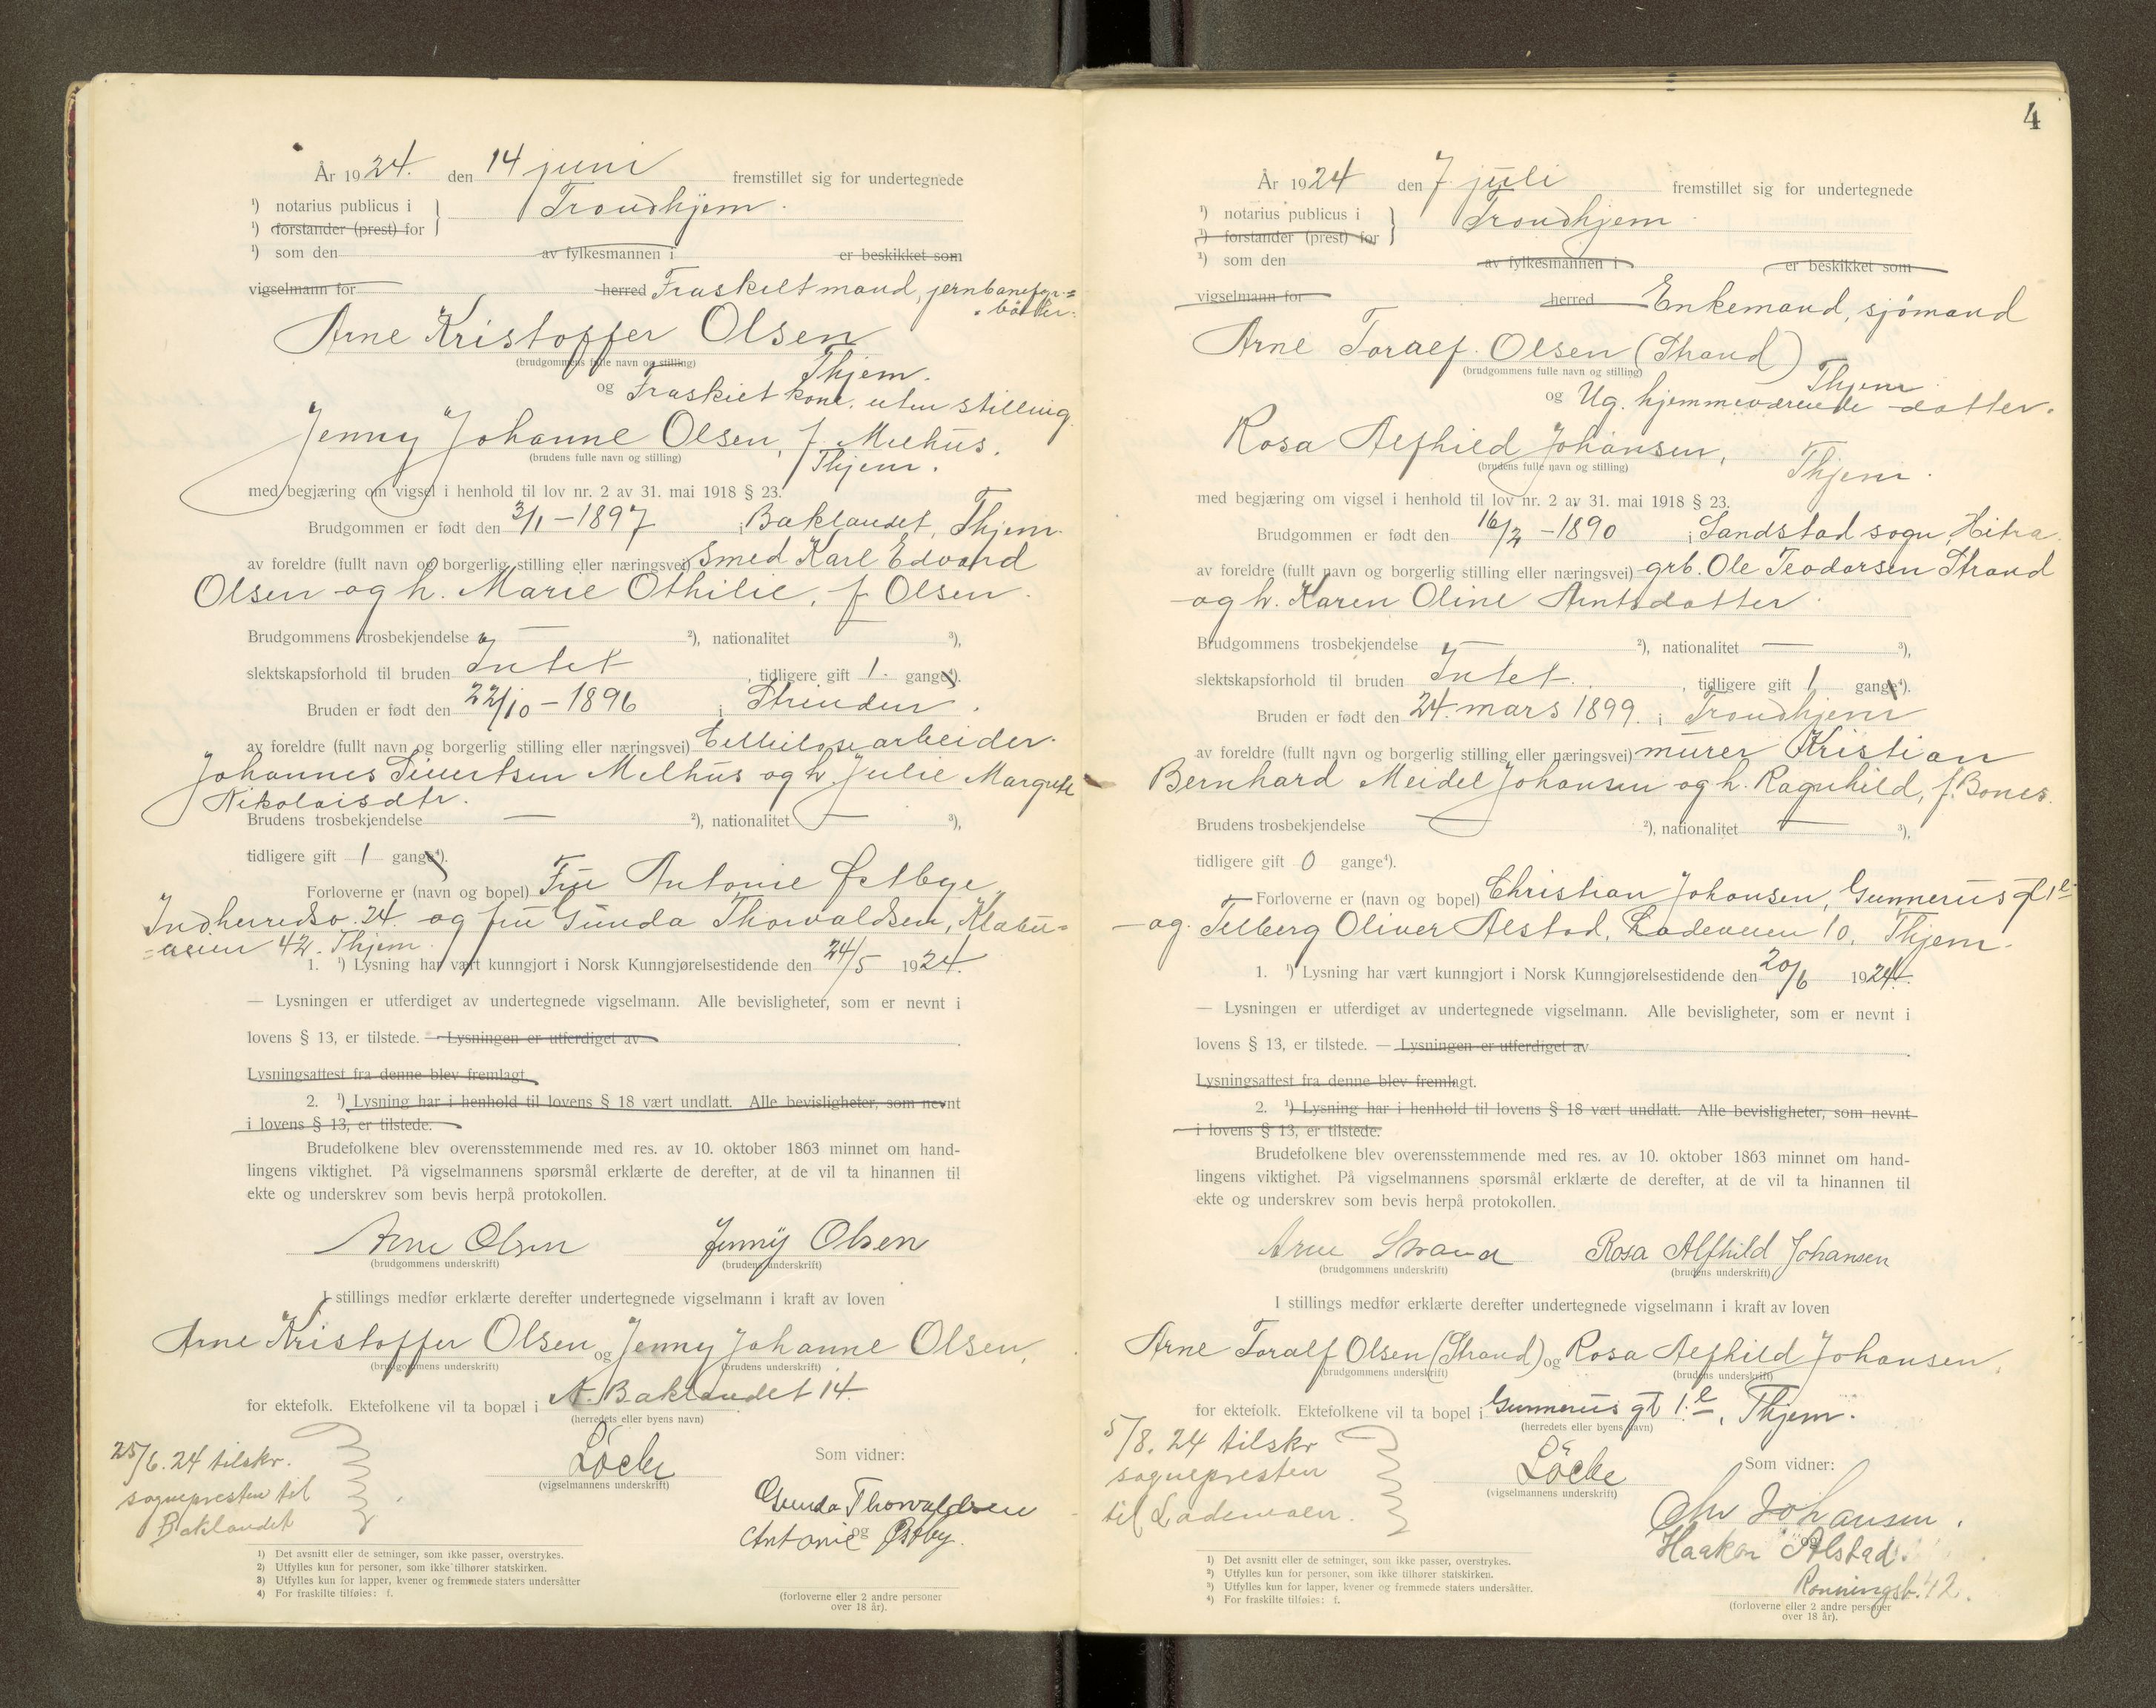 År 1924. den 14 juni fremstillet sig for undertegnede
¹) notarius publicus i } Trondhjem.
¹) forstander (prest) for
¹) som den av fylkesmannen i er beskikket som
vigselmann for herred Fraskilt mand, jernbanefor=
Arne Kristoffer Olsen
(brudgommens fulle navn og stilling) Thjem.
og Fraskilt kone, uten stilling
Jenny Johanne Olsen, f. Melhus.
(brudens fulle navn og stilling) Thjem.
med begjæring om vigsel i henhold til lov nr. 2 av 31. mai 1918 § 23.
Brudgommen er født den 3/1-1897 i Baklandet, Thjem.
av foreldre (fullt navn og borgerlig stilling eller næringsvei) Smed Karl Edvard
Olsen og h. Marie Othilie, f Olsen.
Brudgommens trosbekjendelse — ²), nationalitet ³),
slektskapsforhold til bruden Intet, tidligere gift 1. gange⁴).
Bruden er født den 22/10-1896 i Strinden.
av foreldre (fullt navn og borgerlig stilling eller næringsvei) Cellulosearbeider
Johannes Sivertsen Melhus og h. Julie Margrete
Nikolaisdtr.
Brudens trosbekjendelse — ²), nationalitet — ³),
tidligere gift 1 gange⁴).
Forloverne er (navn og bopel) Frue Antonie Østbye,
Indherredsv. 24. og fru Gunda Thorvaldsen, Klabu=
=veien 42. Thjem.
1. ¹) Lysning har vært kunngjort i Norsk Kunngjørelsestidende den 24/5 1924.
— Lysningen er utferdiget av undertegnede vigselmann. Alle bevisligheter, som er nevnt i
lovens § 13, er tilstede. — Lysningen er utferdiget av
Lysningsattest fra denne blev fremlagt.
2. ¹) Lysning har i henhold til lovens § 18 vært undlatt. Alle bevisligheter, som nevnt
i lovens § 13, er tilstede.
Brudefolkene blev overensstemmende med res. av 10. oktober 1863 minnet om hand-
lingens viktighet. På vigselmannens spørsmål erklærte de derefter, at de vil ta hinannen til
ekte og underskrev som bevis herpå protokollen.
Arne Olsen Jenny Olsen
(brudgommens underskrift) (brudens underskrift)
I stillings medfør erklærte derefter undertegnede vigselmann i kraft av loven
Arne Kristoffer Olsen og Jenny Johanne Olsen,
(brudgommens underskrift) (brudens underskrift)
for ektefolk. Ektefolkene vil ta bopæl i N. Baklandet 14.
(herredets eller byens navn)
25/6.24 tilskr.
sognepresten til
Baklandet
Löcke
(vigselmannens underskrift)
Som vidner:
Gunda Thorvaldsen
og
Antonie Østby.
1) Det avsnitt eller de setninger, som ikke passer, overstrykes.
2) Utfylles kun for personer, som ikke tilhører statskirken.
3) Utfylles kun for lapper, kvener og fremmede staters undersåtter
4) For fraskilte tilføies: f.
(forloverne eller 2 andre personer
over 18 år).
4
År 1924 den 7. juli fremstillet sig for undertegnede
¹) notarius publicus i } Trondhjem.
¹) forstander (prest) for
¹) som den av fylkesmannen i er beskikket som
vigselmann for herred Enkemand, sjömand
Arne Toralf Olsen (Strand)
(brudgommens fulle navn og stilling) Thjem
og Ug. hjemmeværende datter.
Rosa Alfhild Johansen,
(brudens fulle navn og stilling) Thjem.
med begjæring om vigsel i henhold til lov nr. 2 av 31. mai 1918 § 23.
Brudgommen er født den 16/2-1890 i Sandstad sogn, Hitra.
av foreldre (fullt navn og borgerlig stilling eller næringsvei) grb. Ole Teodorsen Strand
og h. Karen Oline Arntsdatter.
Brudgommens trosbekjendelse — ²), nationalitet — ³),
slektskapsforhold til bruden Intet., tidligere gift 1 gange⁴).
Bruden er født den 24. mars 1899. i Trondhjem
av foreldre (fullt navn og borgerlig stilling eller næringsvei) murer Kristian
Bernhard Meidel Johansen og h. Ragnhild, f. Bones.
Brudens trosbekjendelse — ²), nationalitet — ³),
tidligere gift 0 gange⁴).
Forloverne er (navn og bopel) Christian Johansen, Gunnerus gt 1 e
og. Telberg Oliver Alstad, Ladeveien 10, Thjem.
1. ¹) Lysning har vært kunngjort i Norsk Kunngjørelsestidende den 20/6 1924.
— Lysningen er utferdiget av undertegnede vigselmann. Alle bevisligheter, som er nevnt i
lovens § 13, er tilstede. — Lysningen er utferdiget av
Lysningsattest fra denne blev fremlagt.
2. ¹) Lysning har i henhold til lovens § 18 vært undlatt. Alle bevisligheter, som nevnt
i lovens § 13, er tilstede.
Brudefolkene blev overensstemmende med res. av 10. oktober 1863 minnet om hand-
lingens viktighet. På vigselmannens spørsmål erklærte de derefter, at de vil ta hinannen til
ekte og underskrev som bevis herpå protokollen.
Arne Strand Rosa Alfhild Johansen
(brudgommens underskrift) (brudens underskrift)
I stillings medfør erklærte derefter undertegnede vigselmann i kraft av loven
Arne Toralf Olsen (Strand) og Rosa Alfhild Johansen,
(brudgommens underskrift) (brudens underskrift)
for ektefolk. Ektefolkene vil ta bopel i Gunnerus gt 1. e, Thjem.
(herredets eller byens navn)
5/8. 24 tilskr
sognepresten
til Lademoen.
Löcke
(vigselmannens underskrift)
Som vidner:
Chr Johansen.
og
Haakon Alstad.
Ronningsb. 42.
1) Det avsnitt eller de setninger, som ikke passer, overstrykes.
2) Utfylles kun for personer, som ikke tilhører statskirken.
3) Utfylles kun for lapper, kvener og fremmede staters undersåtter.
4) For fraskilte tilføies: f.
(forloverne eller 2 andre personer
over 18 år).